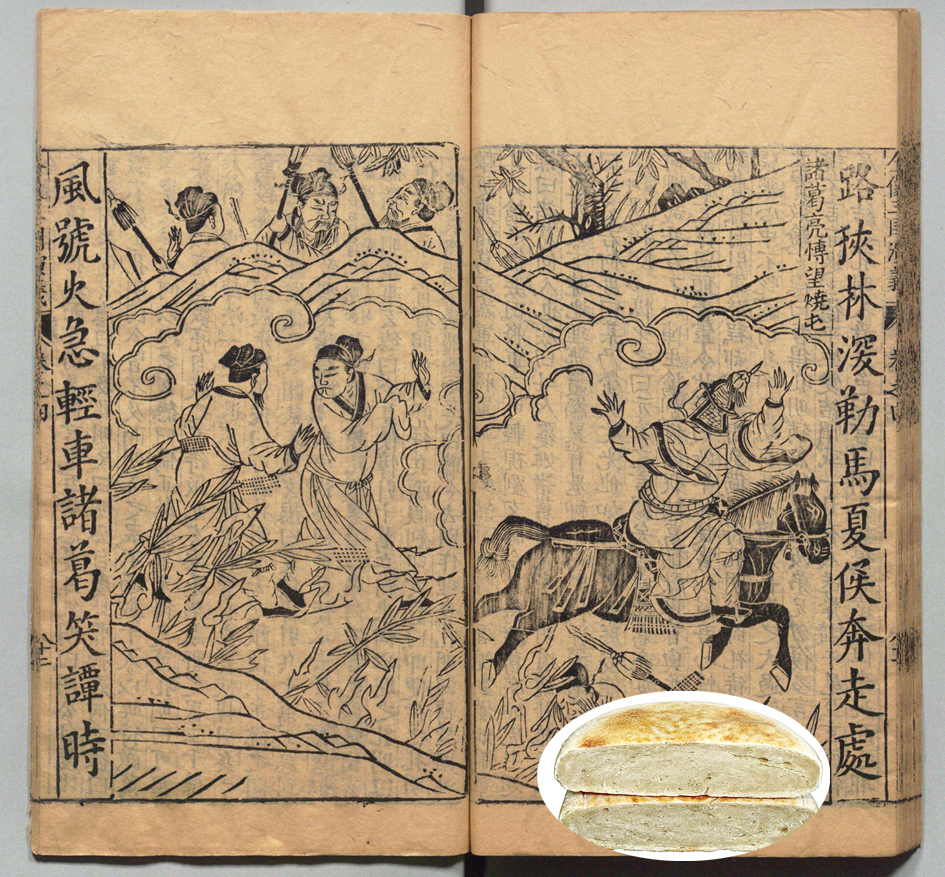 路狹林深勒馬夏侯奔走處
諸葛亮愽望燒屯
風號火急輕車諸葛笑譚時